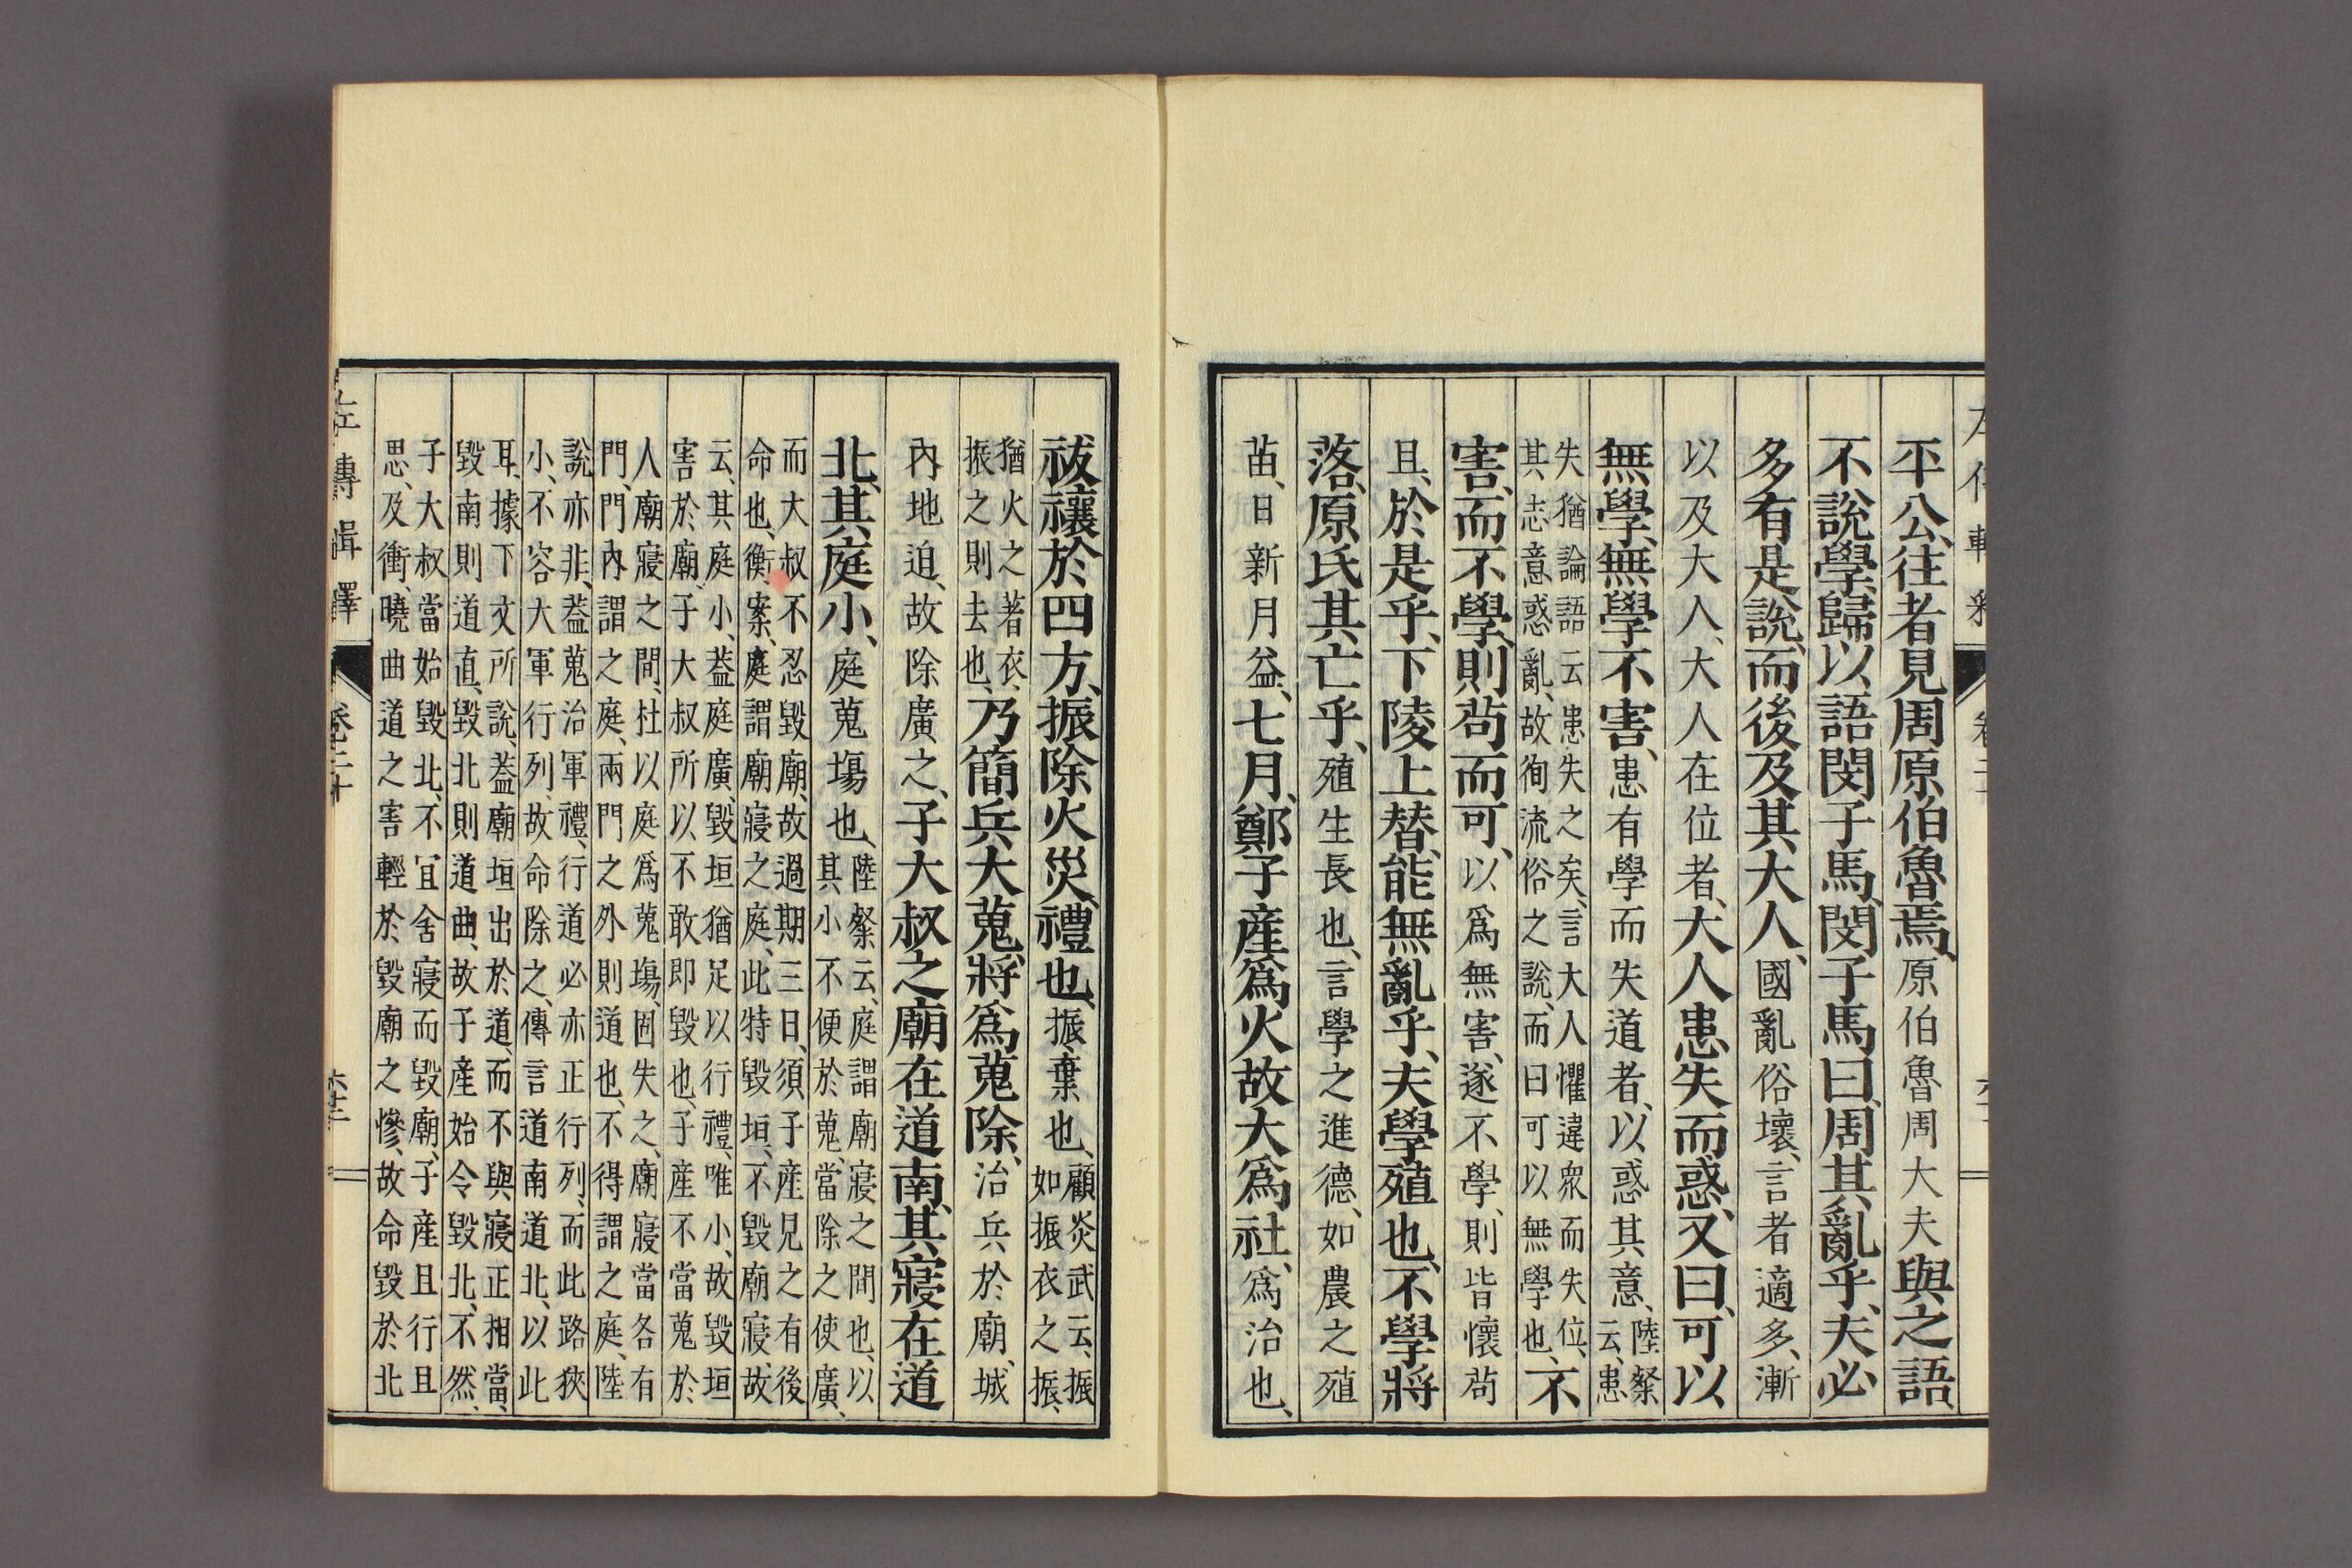 平公、往者見周原伯魯焉、原伯魯周大夫與之語、
不說學、歸以語閔子馬、閔子馬曰、周其亂乎、夫必
多有是說、而後及其大人、國亂俗壞、言者適多、漸
以及大人、大人在位者、大人患失而惑、又曰、可以
無學、無學不害、患有學而失道者、以惑其意、陸粲云、患
失猶論語云患失之矣、言大人懼違衆而失位、
其志意惑亂、故徇流俗之說、而曰可以無學也、不
害、而不學、則苟而可、以爲無害、遂不學、則皆懷苟
且、於是乎、下陵上替、能無亂乎、夫學殖也、不學將
落、原氏其亡乎、殖生長也、言學之進德、如農之殖
苗、日新月益、七月、鄭子產爲火故大爲社、爲治也、
祓禳於四方、振除火災、禮也、振、棄也、顧炎武云、振如振衣之振、
猶火之著衣、
振之則去也、乃簡兵大蒐、將爲蒐除、治兵於廟、城
內地迫、故除廣之、子大叔之廟在道南、其寢在道
北、其庭小、庭蒐場也、陸粲云、庭謂廟寢之間也、以
其小不便於蒐、當除之使廣、
而大叔不忍毀廟、故過期三日、須子產見之有後
命也、衡案、庭謂廟寢之庭、此特毀垣、不毀廟寢、故
云、其庭小、葢庭廣、毀垣猶足以行禮、唯小、故毀垣
害於廟、子大叔所以不敢即毀也、子產不當蒐於
人廟寢之間、杜以庭爲蒐場、固失之、廟寢當各有
門、門內謂之庭、兩門之外則道也、不得謂之庭、陸
說亦非、葢蒐治軍禮、行道必亦正行列、而此路狹
小、不容大軍行列、故命除之、傳言道南道北、以此
耳、據下文所說、葢廟垣出於道、而不與寢正相當、
毀南則道直、毀北則道曲、故子產始令毀北、不然、
子大叔當始毀北、不宜舍寢而毀廟、子產且行且
思、及衝、曉曲道之害輕於毀廟之慘、故命毀於北
左傳輯釋 卷二十 六十二